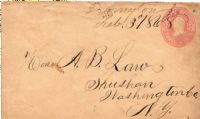 Feb. 3 1868
A. B. Law
Shushan
Washington Co
N.Y.